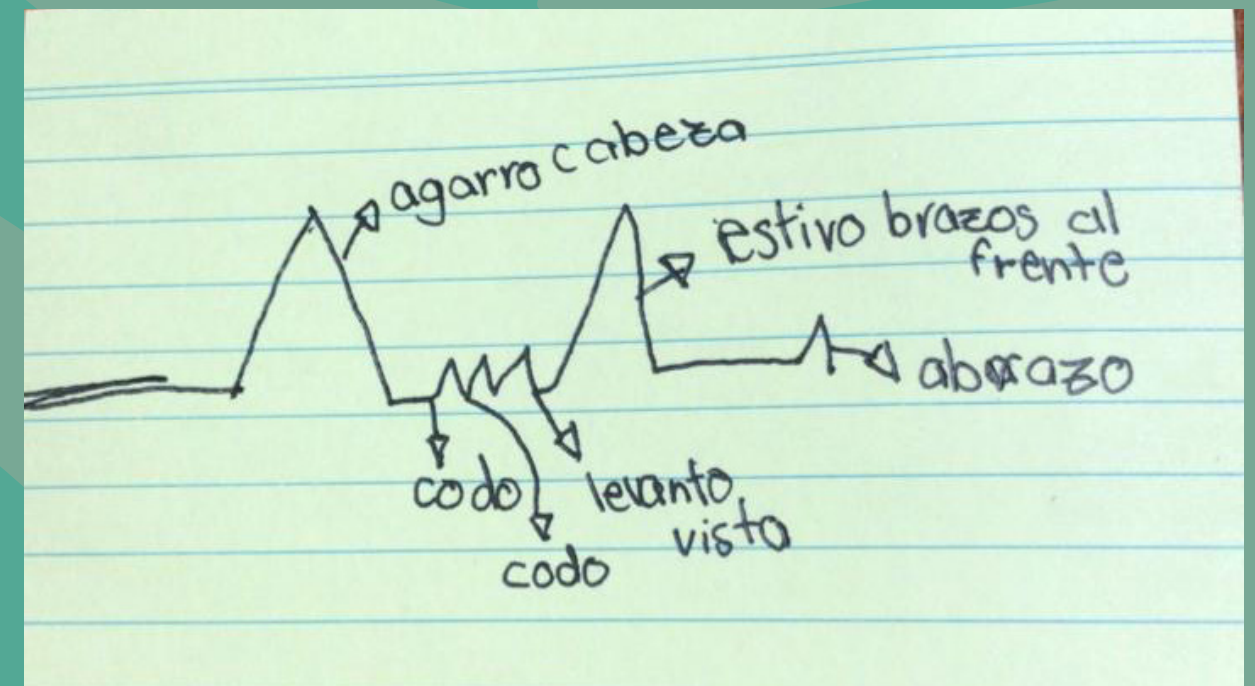 agarro cabeza
estivo brazos al
frente
abrazo
codo
levanto
vista
codo